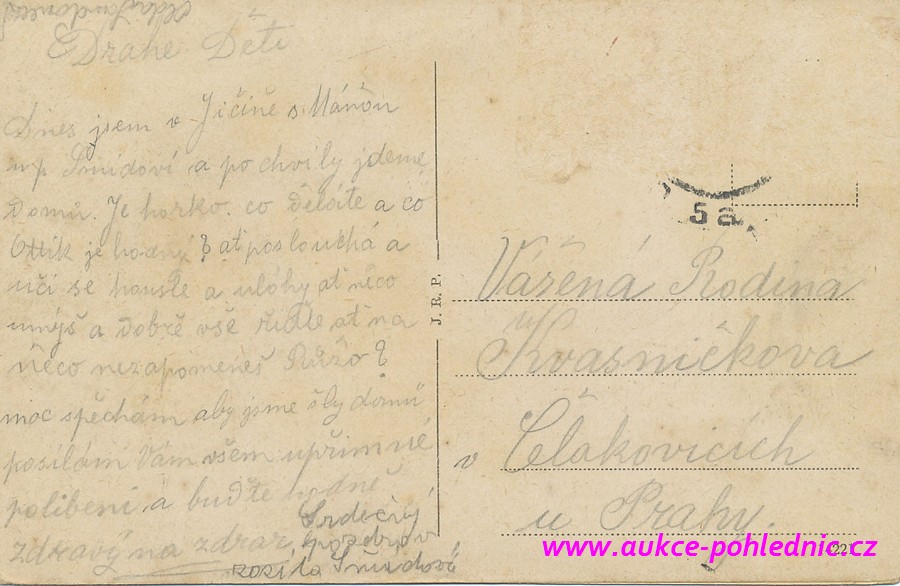 Drahe Děti
Dnes jsem v Jičíně s Mánou
up Šmidoví a po chvily jdeme
Domů. Je horko. co děláte a co
Ottík je hodný? ať poslouchá a
učí se housle a ulohy ať něco
umíš a dobře vše řiďte ať na
něco nezapomeneš Růžo?
moc spěchám aby jsme šly domů
posílám Vám všem upřimné
polibení a buďte hodně
zdravý na zdrar
Srdečný
pozdrav
Šmídová
J. R. P.
5a
Vážená Rodina
Kvasničkova
v Člakovicich
u Prahy.
221
www.aukce-pohlednic.cz